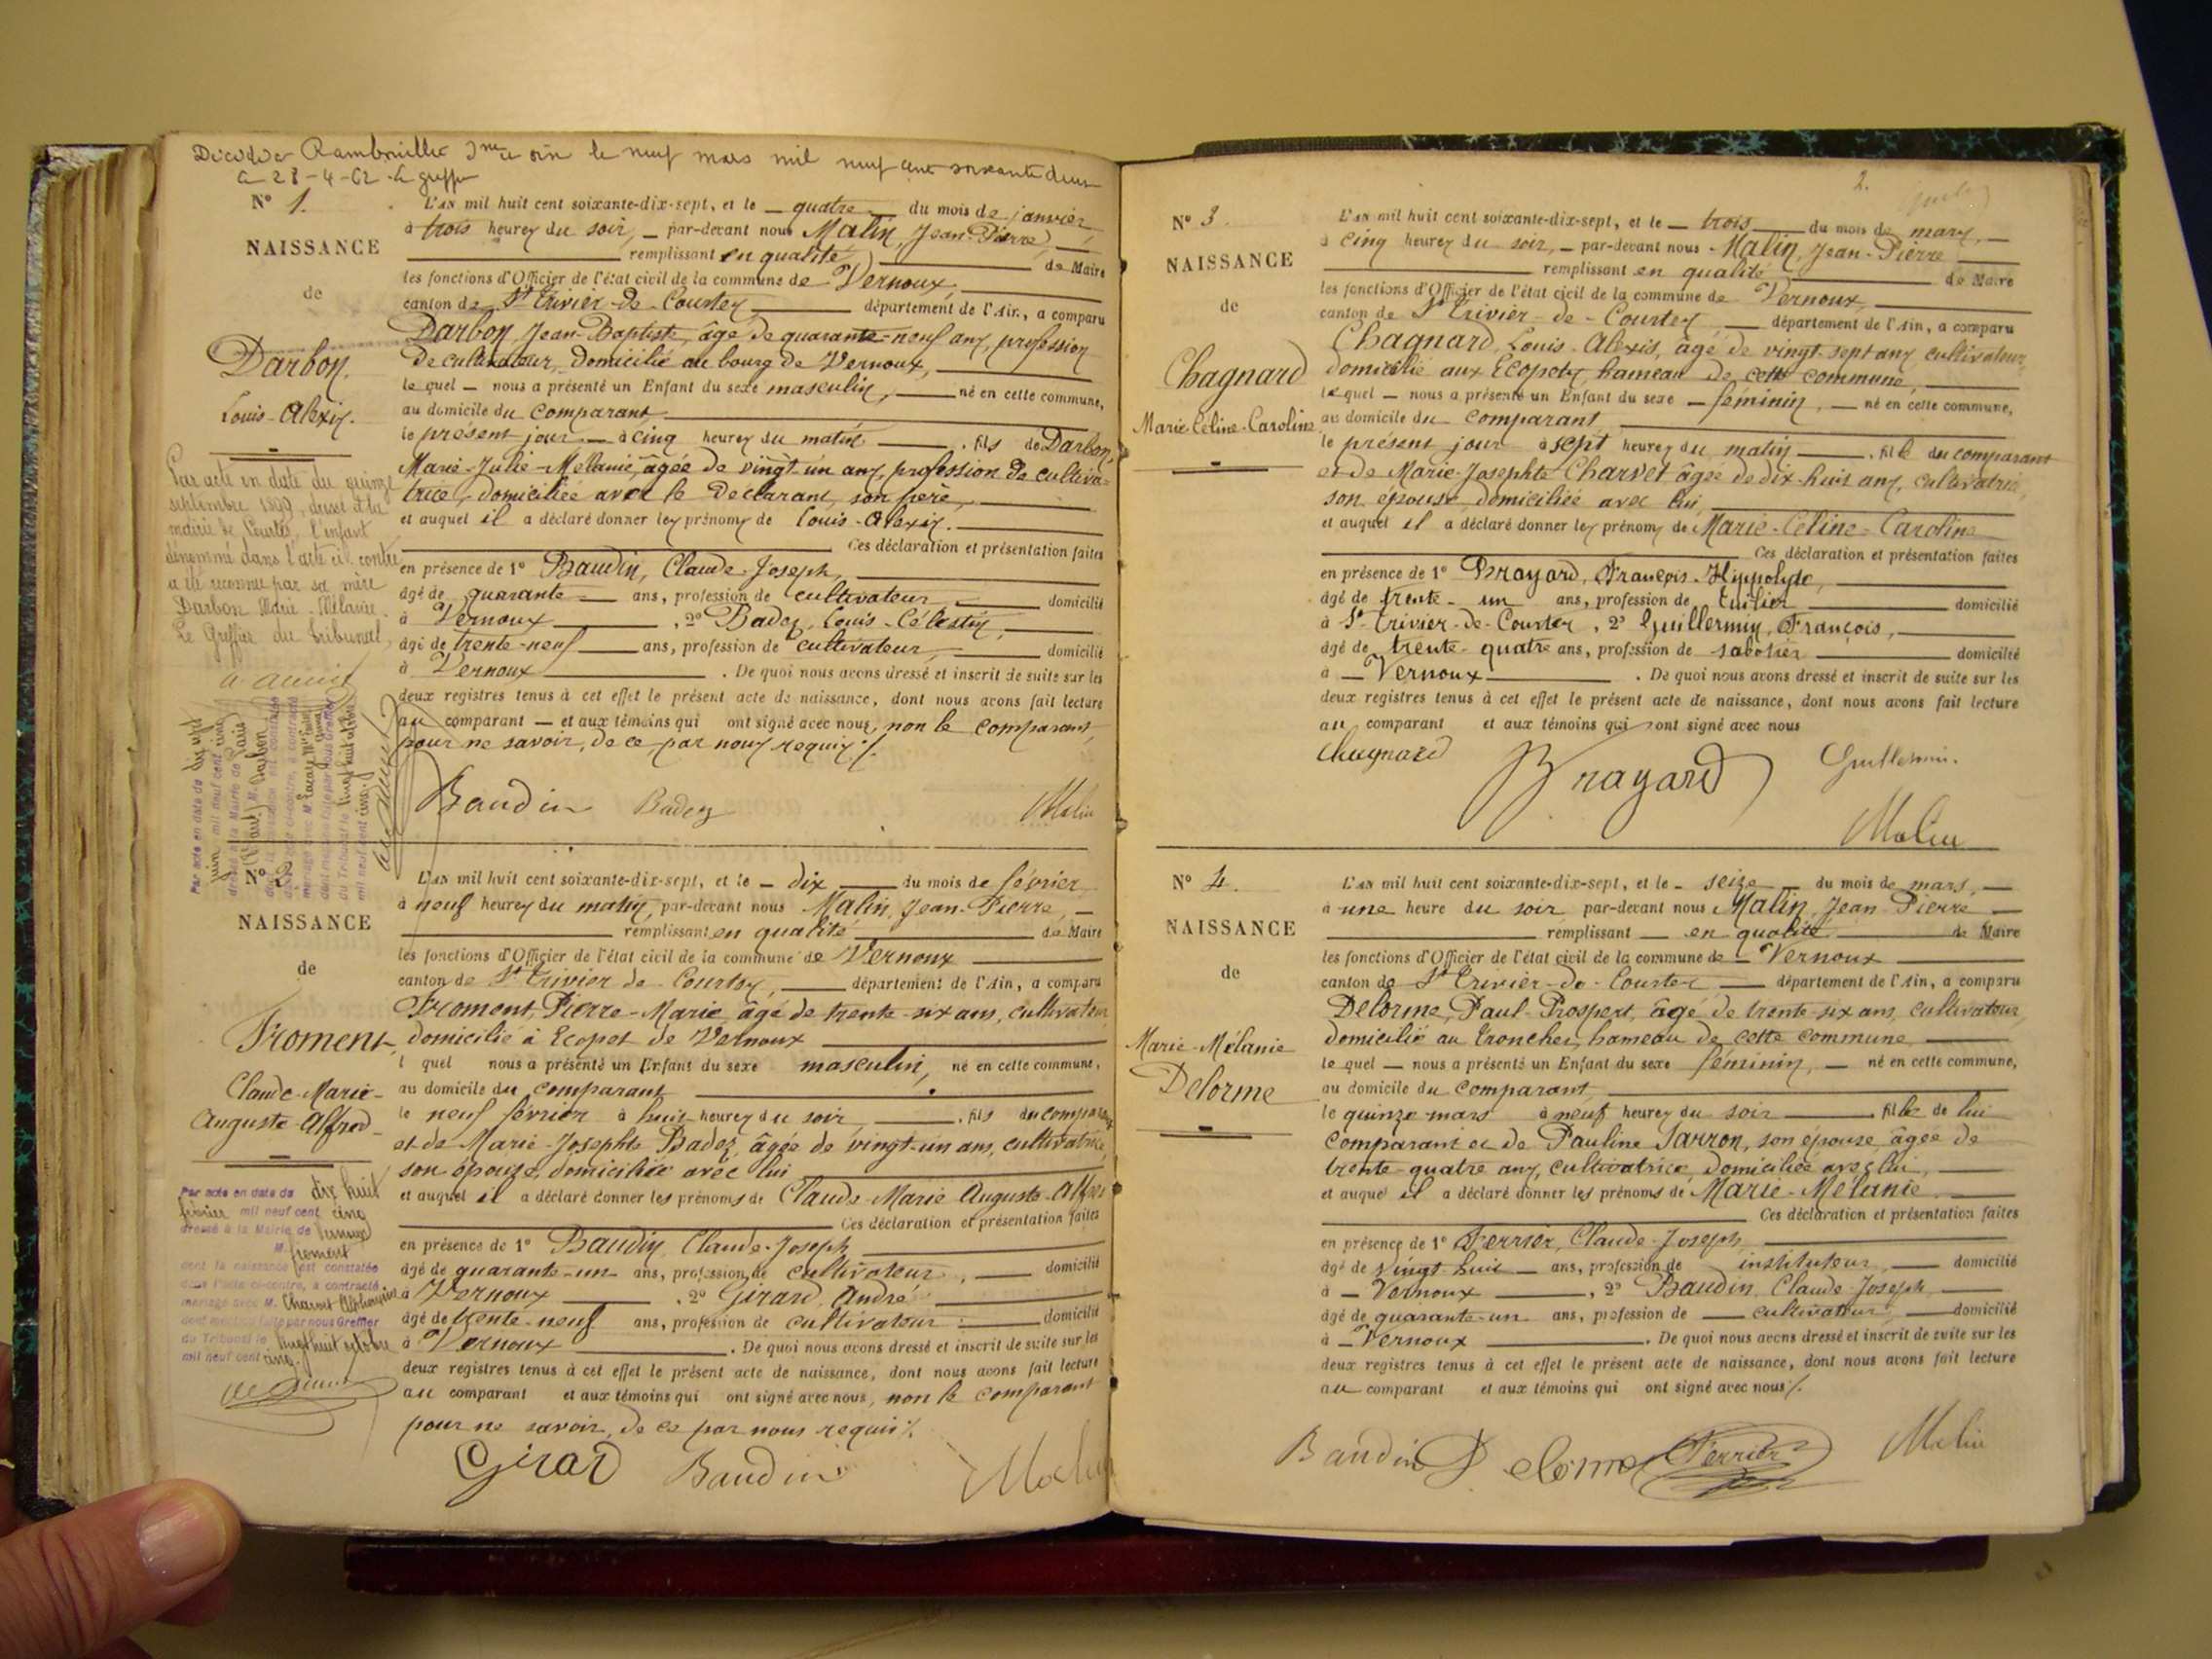 le neuf mars mil neuf cent soixante deux
a 28-4-62
N° 1.
NAISSANCE
de
Darbon
Louis-Alexis.
Par acte en date du quinze
septembre 1899, dressé à la
mairie de Courtes, l'enfant
dénommé dans l'acte ci-contre
a été reconnu par sa mère
Darbon Marie-Mélanie.
Le Greffier du Tribunal,
L'AN mil huit cent soixante-dix-sept, et le quatre du mois de janvier
à trois heures du soir, par-devant nous Malin, Jean-Pierre,
remplissant en qualité de Maire
les fonctions d'Officier de l'état civil de la commune de Vernoux,
canton de St Trivier-de-Courtes département de l'Ain, a comparu
Darbon, Jean-Baptiste, âgé de quarante-neuf ans, profession
de cultivateur, domicilié au bourg de Vernoux,
lequel nous a présenté un Enfant du sexe masculin, né en cette commune,
au domicile du comparant
le présent jour à cinq heures du matin, fils de Darbon,
Marie-Julie-Mélanie, âgée de vingt-un ans, profession de cultiva-
trice, domiciliée avec le déclarant, son père,
et auquel il a déclaré donner les prénoms de Louis-Alexis.
Ces déclaration et présentation faites
en présence de 1° Baudin, Claude-Joseph,
âgé de quarante ans, profession de cultivateur, domicilié
à Vernoux, 2° Badez, Louis-Célestin,
âgé de trente-neuf ans, profession de cultivateur, domicilié
à Vernoux. De quoi nous avons dressé et inscrit de suite sur les
deux registres tenus à cet effet le présent acte de naissance, dont nous avons fait lecture
au comparant et aux témoins qui ont signé avec nous, non le comparant
pour ne savoir, de ce par nous requis ./.
Baudin Badez Malin
N° 2
NAISSANCE
de
Froment
Claude-Marie-
Auguste-Alfred
Par acte en date du dix huit
février mil neuf cent cinq
dressé à la Mairie de Vernoux
M. Froment
dont la naissance est constatée
dans l'acte ci-contre, a contracté
mariage avec M. Charvet Alphonsine
dont mention faite par nous Greffier
du Tribunal le vingt huit octobre
mil neuf cent cinq.
L'AN mil huit cent soixante-dix-sept, et le dix du mois de février
à neuf heures du matin, par-devant nous Malin, Jean-Pierre,
remplissant en qualité de Maire
les fonctions d'Officier de l'état civil de la commune de Vernoux
canton de St Trivier de Courtes, département de l'Ain, a comparu
Froment, Pierre-Marie, âgé de trente-six ans, cultivateur
domicilié à Ecopet de Vernoux
lequel nous a présenté un Enfant du sexe masculin, né en cette commune,
au domicile du comparant
le neuf février à huit heures du soir, fils du comparant
et de Marie-Josephte Badez, âgée de vingt-un ans, cultivatrice,
son épouse, domiciliée avec lui
et auquel il a déclaré donner les prénoms de Claude-Marie Auguste-Alfred
Ces déclaration et présentation faites
en présence de 1° Baudin, Claude-Joseph
âgé de quarante-un ans, profession de cultivateur, domicilié
à Vernoux, 2° Girard, André
âgé de trente-neuf ans, profession de cultivateur domicilié
à Vernoux. De quoi nous avons dressé et inscrit de suite sur les
deux registres tenus à cet effet le présent acte de naissance, dont nous avons fait lecture
au comparant et aux témoins qui ont signé avec nous, non le comparant
pour ne savoir, de ce par nous requis ./.
Girard Baudin Malin
2.
N° 3.
NAISSANCE
de
Chagnard
Marie-Céline-Caroline
L'AN mil huit cent soixante-dix-sept, et le trois du mois de mars,
à cinq heures du soir, par-devant nous Malin, Jean-Pierre
remplissant en qualité de Maire
les fonctions d'Officier de l'état civil de la commune de Vernoux,
canton de St Trivier-de-Courtes, département de l'Ain, a comparu
Chagnard, Louis-Alexis, âgé de vingt-sept ans, cultivateur,
domicilié aux Ecopets, hameau de cette commune,
lequel nous a présenté un Enfant du sexe féminin, né en cette commune,
au domicile du comparant,
le présent jour à sept heures du matin, fille du comparant
et de Marie-Josephte Charvet âgée de dix-huit ans, cultivatrice,
son épouse, domiciliée avec lui,
et auquel il a déclaré donner les prénoms de Marie-Céline-Caroline
Ces déclaration et présentation faites
en présence de 1° Brayard, François-Hippolyte,
âgé de trente-un ans, profession de tuilier domicilié
à St Trivier-de-Courtes, 2° Guillermin, François,
âgé de trente-quatre ans, profession de sabotier domicilié
à Vernoux. De quoi nous avons dressé et inscrit de suite sur les
deux registres tenus à cet effet le présent acte de naissance, dont nous avons fait lecture
au comparant et aux témoins qui ont signé avec nous
Chagnard Brayard Guillermin.
Malin
N° 4.
NAISSANCE
de
Marie-Mélanie
Delorme
L'AN mil huit cent soixante-dix-sept, et le seize du mois de mars,
à une heure du soir, par-devant nous Malin, Jean Pierre
remplissant en qualité de Maire
les fonctions d'Officier de l'état civil de la commune de Vernoux
canton de St Trivier-de-Courtes département de l'Ain, a comparu
Delorme, Paul-Prospert, âgé de trente-six ans, cultivateur,
domicilié au Tronches, hameau de cette commune
lequel nous a présenté un Enfant du sexe féminin, né en cette commune,
au domicile du comparant,
le quinze mars à neuf heures du soir fille de lui
comparant et de Pauline Jarron, son épouse, âgée de
trente-quatre ans, cultivatrice, domiciliée avec lui,
et auquel il a déclaré donner les prénoms de Marie-Mélanie.
Ces déclaration et présentation faites
en présence de 1° Ferrier, Claude-Joseph,
âgé de vingt-huit ans, profession de instituteur, domicilié
à Vernoux, 2° Baudin, Claude-Joseph,
âgé de quarante-un ans, profession de cultivateur, domicilié
à Vernoux. De quoi nous avons dressé et inscrit de suite sur les
deux registres tenus à cet effet le présent acte de naissance, dont nous avons fait lecture
au comparant et aux témoins qui ont signé avec nous ./.
Baudin Delorme Ferrier Malin